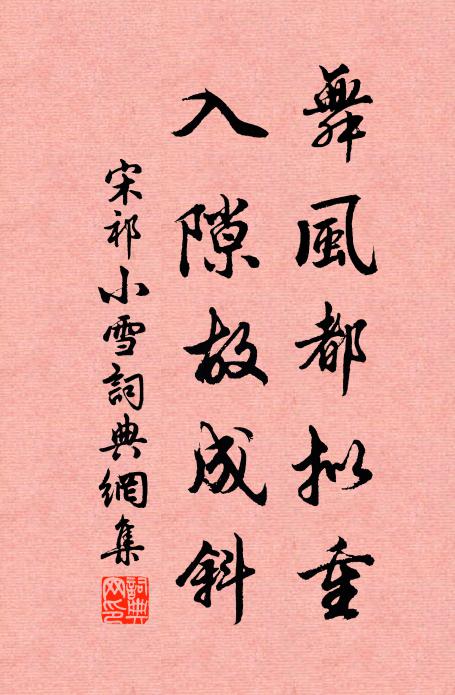 舞風都拟重
入隙故成斜
宋祁小雪詞典網集
詞典网印